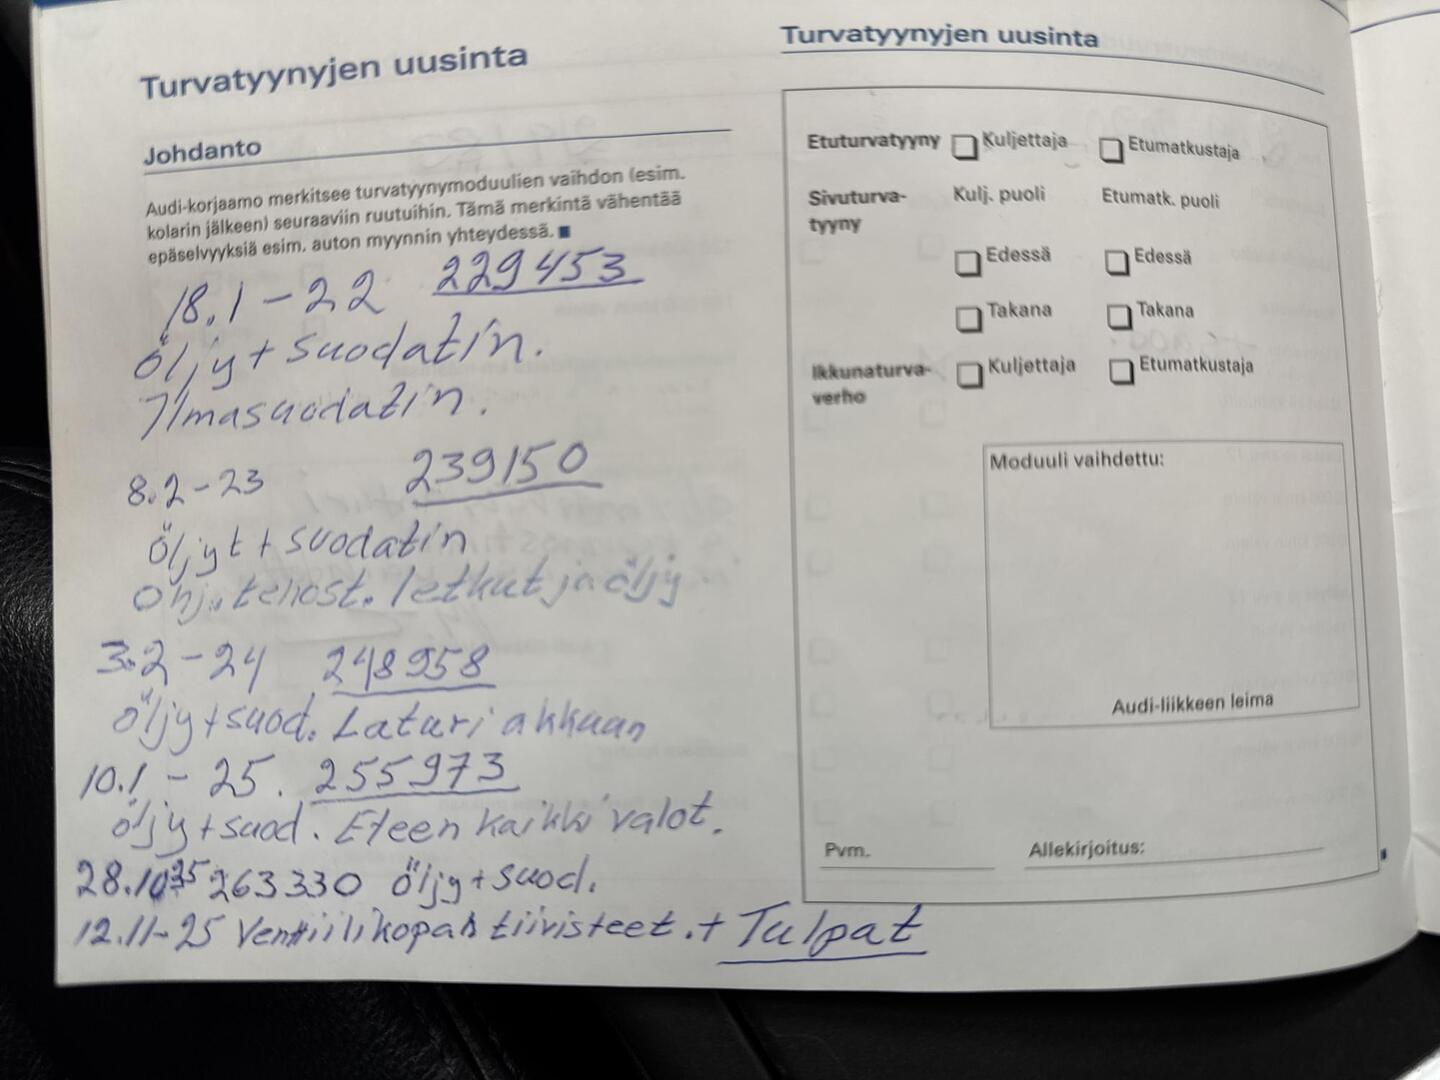 Turvatyynyjen uusinta
Johdanto
Audi-korjaamo merkitsee turvatyynymoduulien vaihdon (esim.
kolarin jälkeen) seuraaviin ruutuihin. Tämä merkintä vähentää
epäselvyyksiä esim. auton myynnin yhteydessä.
18.1-22 229453
Öljy+suodatin.
Ilmasuodatin.
8.2-23 239150
Öljyt+suodatin
Ohj.tehost. letkut ja öljy
3.2-24 248958
Öljy+suod. Laturi akkuun
10.1-25. 255973
Öljy+suod. Eteen kaikki valot.
28.10-25 263330 Öljy+suod.
12.11-25 Venttiilikopan tiivisteet.+ Tulpat
Turvatyynyjen uusinta
Etuturvatyyny Kuljettaja Etumatkustaja
Sivuturva- Kulj. puoli Etumatk. puoli
tyyny
Edessä Edessä
Takana Takana
Ikkunaturva- Kuljettaja Etumatkustaja
verho
Moduuli vaihdettu:
Audi-liikkeen leima
Pvm. Allekirjoitus: